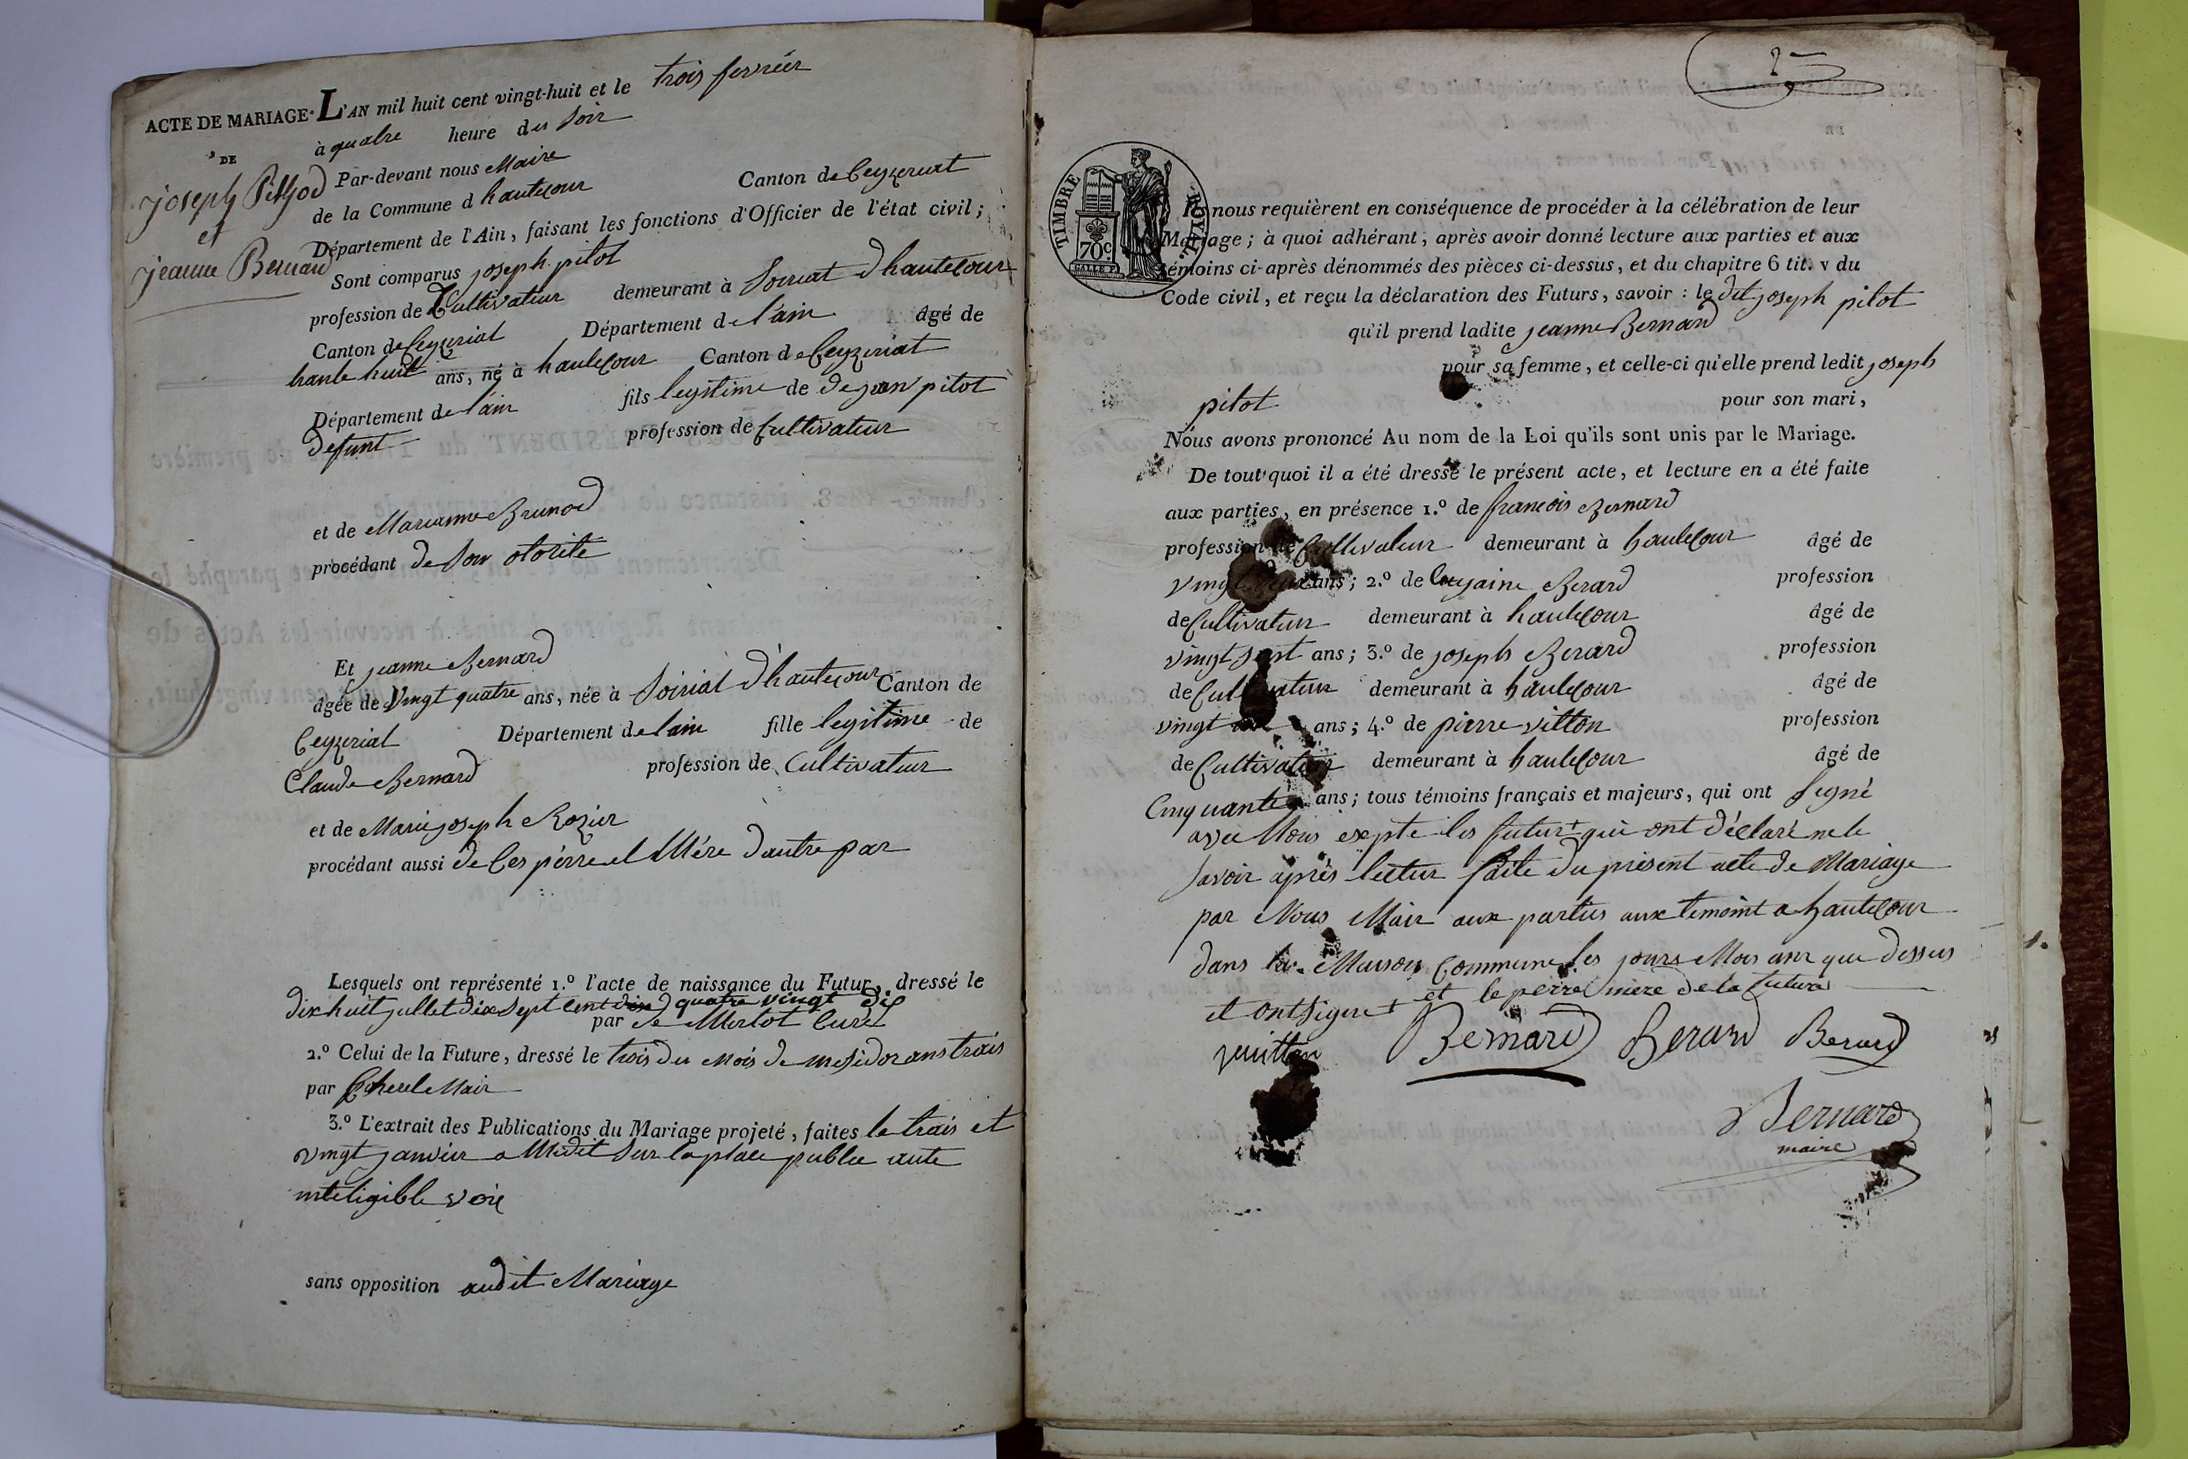 ACTE DE MARIAGE. L'AN mil huit cent vingt-huit et le trois fevriér
DE à quatre heure du Soir
Par-devant nous Maire
joseph
de la Commune d hautecour Canton de Ceyzeriat
et
Département de l'Ain, faisant les fonctions d'Officier de l'état civil;
jeanne Bernard
Sont comparus joseph pilot
profession de Cultivateur demeurant à Soiriat d hautecour
Canton de Ceyzeriat Département de l'ain âgé de
trante huit ans, né à hautecour Canton de Ceyzeriat
Département de l'ain fils legitime de de jean pitot
defunt profession de Cultivateur
et de Marianne Brunod
procédant de Son otorite
Et jeanne Bernard
âgée de vingt quatre ans, née à Soiriat d'hautecour Canton de
Ceyzeriat Département de lain fille legitime de
Claude Bernard profession de Cultivateur
et de Marie joseph Rozier
procédant aussi de Ces pérre et Mére d'autre par
Lesquels ont représenté 1.º l'acte de naissance du Futur, dressé le
dix huit jullet dix sept cent quatre vingt dix
par Curé
2.º Celui de la Future, dressé le trois du mois de messidor ans trois
par Mair
3.º L'extrait des Publications du Mariage projeté, faites le trais et
vingt janvier a Midit Sur la place publee aute
inteligible voix
sans opposition audit Mariage
2
TIMBRE ROYAL
70 c.
Ils nous requièrent en conséquence de procéder à la célébration de leur
Mariage; à quoi adhérant, après avoir donné lecture aux parties et aux
témoins ci-après dénommés des pièces ci-dessus, et du chapitre 6 tit. v du
Code civil, et reçu la déclaration des Futurs, savoir : le dit joseph pilot
qu'il prend ladite jeanne Bernard
pour sa femme, et celle-ci qu'elle prend ledit joseph
pitot pour son mari,
Nous avons prononcé Au nom de la Loi qu'ils sont unis par le Mariage.
De tout quoi il a été dressé le présent acte, et lecture en a été faite
aux parties, en présence 1.º de francois Bernard
profession de Cultivateur demeurant à hautecour âgé de
vingt ans; 2.º de Berard profession
de Cultivateur demeurant à hautecour âgé de
vingt sept ans; 3.º de joseph Berard profession
de Cultivateur demeurant à hautecour âgé de
vingt ans; 4.º de pierre vitton profession
de Cultivateur demeurant à hautecour âgé de
Cinquante ans; tous témoins français et majeurs, qui ont Segné
avec Nous expte les futur qui ont déclaré ne le
Savoir aprés lectur faite du présent acte de Mariage
par Nous Mair aux parties aux temoint a hautecour
dans la Maison Commune les jours Mois ans que dessus
et ont Signe et le perre mere de la future
Bernard Berard Berard
Bernard
maire